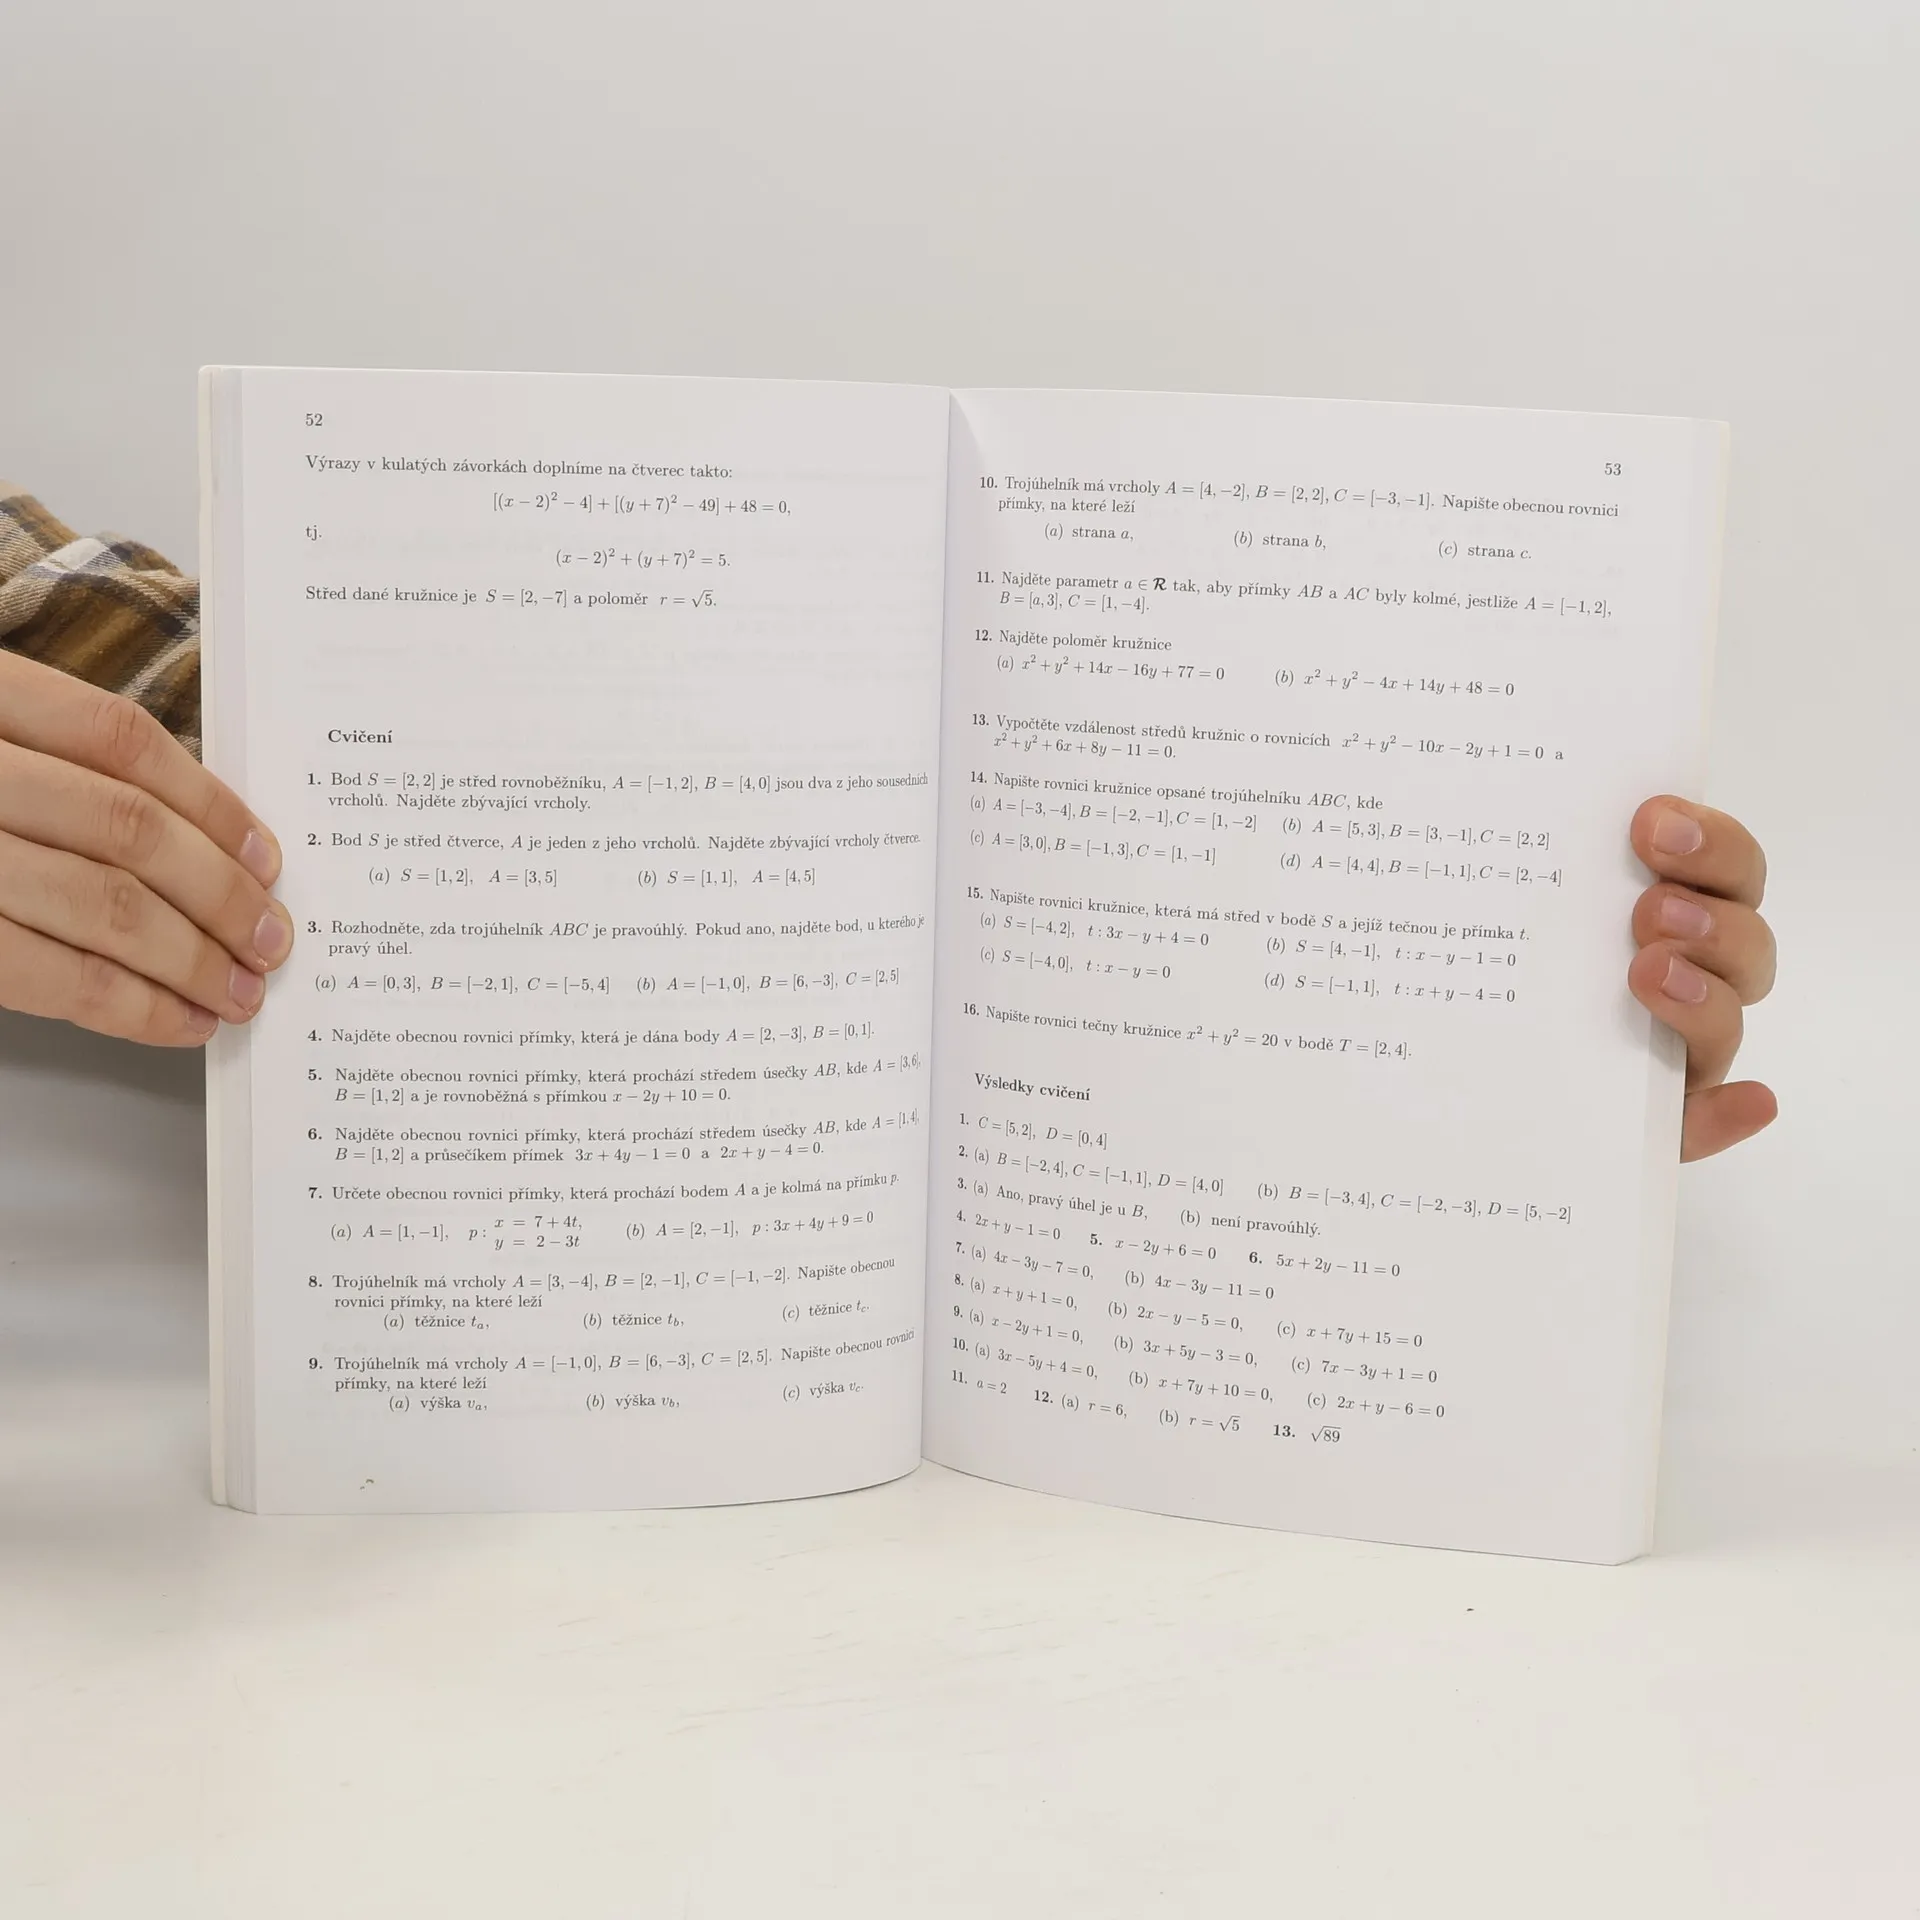 52
Výrazy v kulatých závorkách doplníme na čtverec takto:
[(x − 2)² − 4] + [(y + 7)² − 49] + 48 = 0,
tj.
(x − 2)² + (y + 7)² = 5.
Střed dané kružnice je S = [2, −7] a poloměr r = √5.
Cvičení
1. Bod S = [2, 2] je střed rovnoběžníku, A = [−1, 2], B = [4, 0] jsou dva z jeho sousedních
vrcholů. Najděte zbývající vrcholy.
2. Bod S je střed čtverce, A je jeden z jeho vrcholů. Najděte zbývající vrcholy čtverce.
(a) S = [1, 2], A = [3, 5] (b) S = [1, 1], A = [4, 5]
3. Rozhodněte, zda trojúhelník ABC je pravoúhlý. Pokud ano, najděte bod, u kterého je
pravý úhel.
(a) A = [0, 3], B = [−2, 1], C = [−5, 4] (b) A = [−1, 0], B = [6, −3], C = [2, 5]
4. Najděte obecnou rovnici přímky, která je dána body A = [2, −3], B = [0, 1].
5. Najděte obecnou rovnici přímky, která prochází středem úsečky AB, kde A = [3, 6],
B = [1, 2] a je rovnoběžná s přímkou x − 2y + 10 = 0.
6. Najděte obecnou rovnici přímky, která prochází středem úsečky AB, kde A = [1, 4],
B = [1, 2] a průsečíkem přímek 3x + 4y − 1 = 0 a 2x + y − 4 = 0.
7. Určete obecnou rovnici přímky, která prochází bodem A a je kolmá na přímku p.
(a) A = [1, −1], p : x = 7 + 4t, (b) A = [2, −1], p : 3x + 4y + 9 = 0
y = 2 − 3t
8. Trojúhelník má vrcholy A = [3, −4], B = [2, −1], C = [−1, −2]. Napište obecnou
rovnici přímky, na které leží
(a) těžnice tₐ, (b) těžnice t_b, (c) těžnice t_c.
9. Trojúhelník má vrcholy A = [−1, 0], B = [6, −3], C = [2, 5]. Napište obecnou rovnici
přímky, na které leží
(a) výška vₐ, (b) výška v_b, (c) výška v_c.
53
10. Trojúhelník má vrcholy A = [4, −2], B = [2, 2], C = [−3, −1]. Napište obecnou rovnici
přímky, na které leží
(a) strana a, (b) strana b, (c) strana c.
11. Najděte parametr a ∈ R tak, aby přímky AB a AC byly kolmé, jestliže A = [−1, 2],
B = [a, 3], C = [1, −4].
12. Najděte poloměr kružnice
(a) x² + y² + 14x − 16y + 77 = 0 (b) x² + y² − 4x + 14y + 48 = 0
13. Vypočtěte vzdálenost středů kružnic o rovnicích x² + y² − 10x − 2y + 1 = 0 a
x² + y² + 6x + 8y − 11 = 0.
14. Napište rovnici kružnice opsané trojúhelníku ABC, kde
(a) A = [−3, −4], B = [−2, −1], C = [1, −2] (b) A = [5, 3], B = [3, −1], C = [2, 2]
(c) A = [3, 0], B = [−1, 3], C = [1, −1] (d) A = [4, 4], B = [−1, 1], C = [2, −4]
15. Napište rovnici kružnice, která má střed v bodě S a jejíž tečnou je přímka t.
(a) S = [−4, 2], t : 3x − y + 4 = 0 (b) S = [4, −1], t : x − y − 1 = 0
(c) S = [−4, 0], t : x − y = 0 (d) S = [−1, 1], t : x + y − 4 = 0
16. Napište rovnici tečny kružnice x² + y² = 20 v bodě T = [2, 4].
Výsledky cvičení
1. C = [5, 2], D = [0, 4]
2. (a) B = [−2, 4], C = [−1, 1], D = [4, 0] (b) B = [−3, 4], C = [−2, −3], D = [5, −2]
3. (a) Ano, pravý úhel je u B, (b) není pravoúhlý.
4. 2x + y − 1 = 0 5. x − 2y + 6 = 0 6. 5x + 2y − 11 = 0
7. (a) 4x − 3y − 7 = 0, (b) 4x − 3y − 11 = 0
8. (a) x + y + 1 = 0, (b) 2x − y − 5 = 0, (c) x + 7y + 15 = 0
9. (a) x − 2y + 1 = 0, (b) 3x + 5y − 3 = 0, (c) 7x − 3y + 1 = 0
10. (a) 3x − 5y + 4 = 0, (b) x + 7y + 10 = 0, (c) 2x + y − 6 = 0
11. a = 2 12. (a) r = 6, (b) r = √5 13. √89